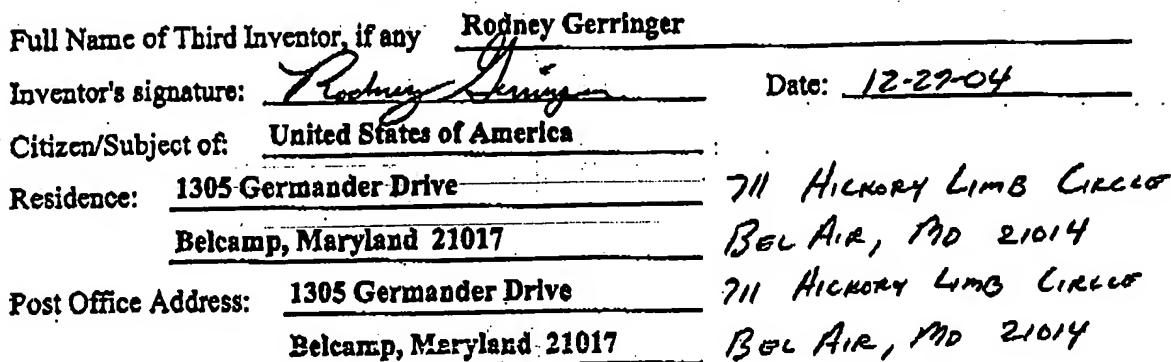 Full Name of Third Inventor, if any Rodney Gerringer
Inventor's signature: Rodney Gerringer Date: 12-29-04
Citizen/Subject of: United States of America
Residence: 1305 Germander Drive 711 HICKORY LIMB CIRCLE
Belcamp, Maryland 21017 BEL AIR, MD 21014
Post Office Address: 1305 Germander Drive 711 HICKORY LIMB CIRCLE
Belcamp, Maryland 21017 BEL AIR, MD 21014